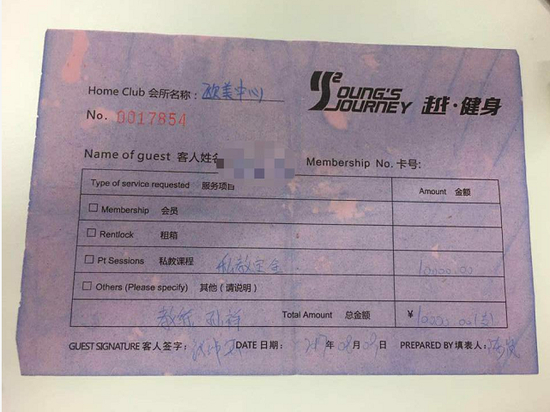 Home Club 会所名称: 欧美中心
YOUNG'S JOURNEY 越·健身
No. 0017854
Name of guest 客人姓名 Membership No. 卡号:
Type of service requested 服务项目 Amount 金额
□ Membership 会员
□ Rentlock 租箱
□ Pt Sessions 私教课程 私教定金 10000.00
□ Others (Please specify) 其他 (请说明)
教练 Total Amount 总金额 ¥ 10000.00
GUEST SIGNATURE 客人签字: DATE 日期: PREPARED BY 填表人: